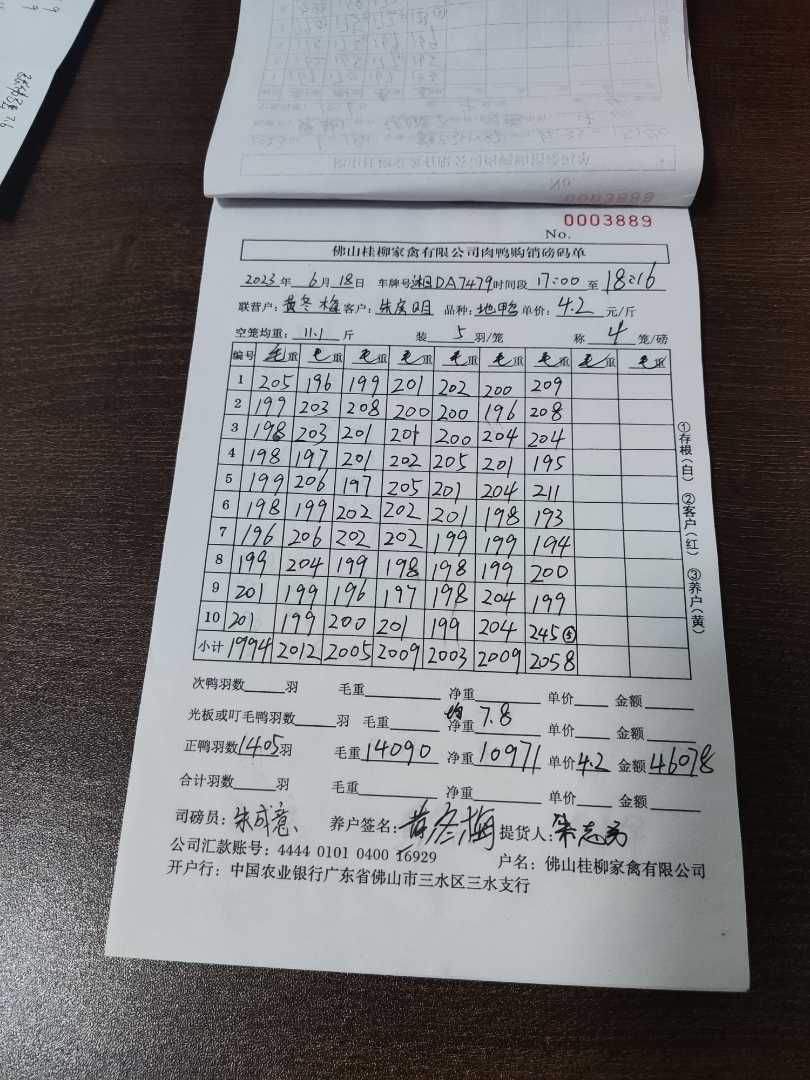 0003888
0003889
No.
佛山桂柳家禽有限公司肉鸭购销磅码单
2023年 6月18日 车牌号湘DA7479时间段 17:00 至 18:16
联营户: 黄冬梅 客户: 品种: 地鸭 单价: 4.2 元/斤
空笼均重: 11.1 斤 装 5 羽/笼 称 4 笼/磅
编号 毛重 毛重 毛重 毛重 毛重 毛重 毛重 毛重 毛重
1 205 196 199 201 202 200 209
2 199 203 208 200 200 196 208
3 198 203 201 201 200 204 204
4 198 197 201 202 205 201 195
5 199 206 197 205 201 204 211
6 198 199 202 202 201 198 193
7 196 206 202 202 199 199 194
8 199 204 199 198 198 199 200
9 201 199 196 197 198 204 199
10 201 199 200 201 199 204 245⑤
小计 1994 2012 2005 2009 2003 2009 2058
①存根(白) ②客户(红) ③养户(黄)
次鸭羽数 羽 毛重 净重 单价 金额
光板或叮毛鸭羽数 羽 毛重 均 净重 7.8 单价 金额
正鸭羽数1405羽 毛重14090 净重10971 单价4.2 金额46078
合计羽数 羽 毛重 净重 单价 金额
司磅员: 朱成意 养户签名: 黄冬梅 提货人:
公司汇款账号: 4444 0101 0400 16929 户名: 佛山桂柳家禽有限公司
开户行: 中国农业银行广东省佛山市三水区三水支行